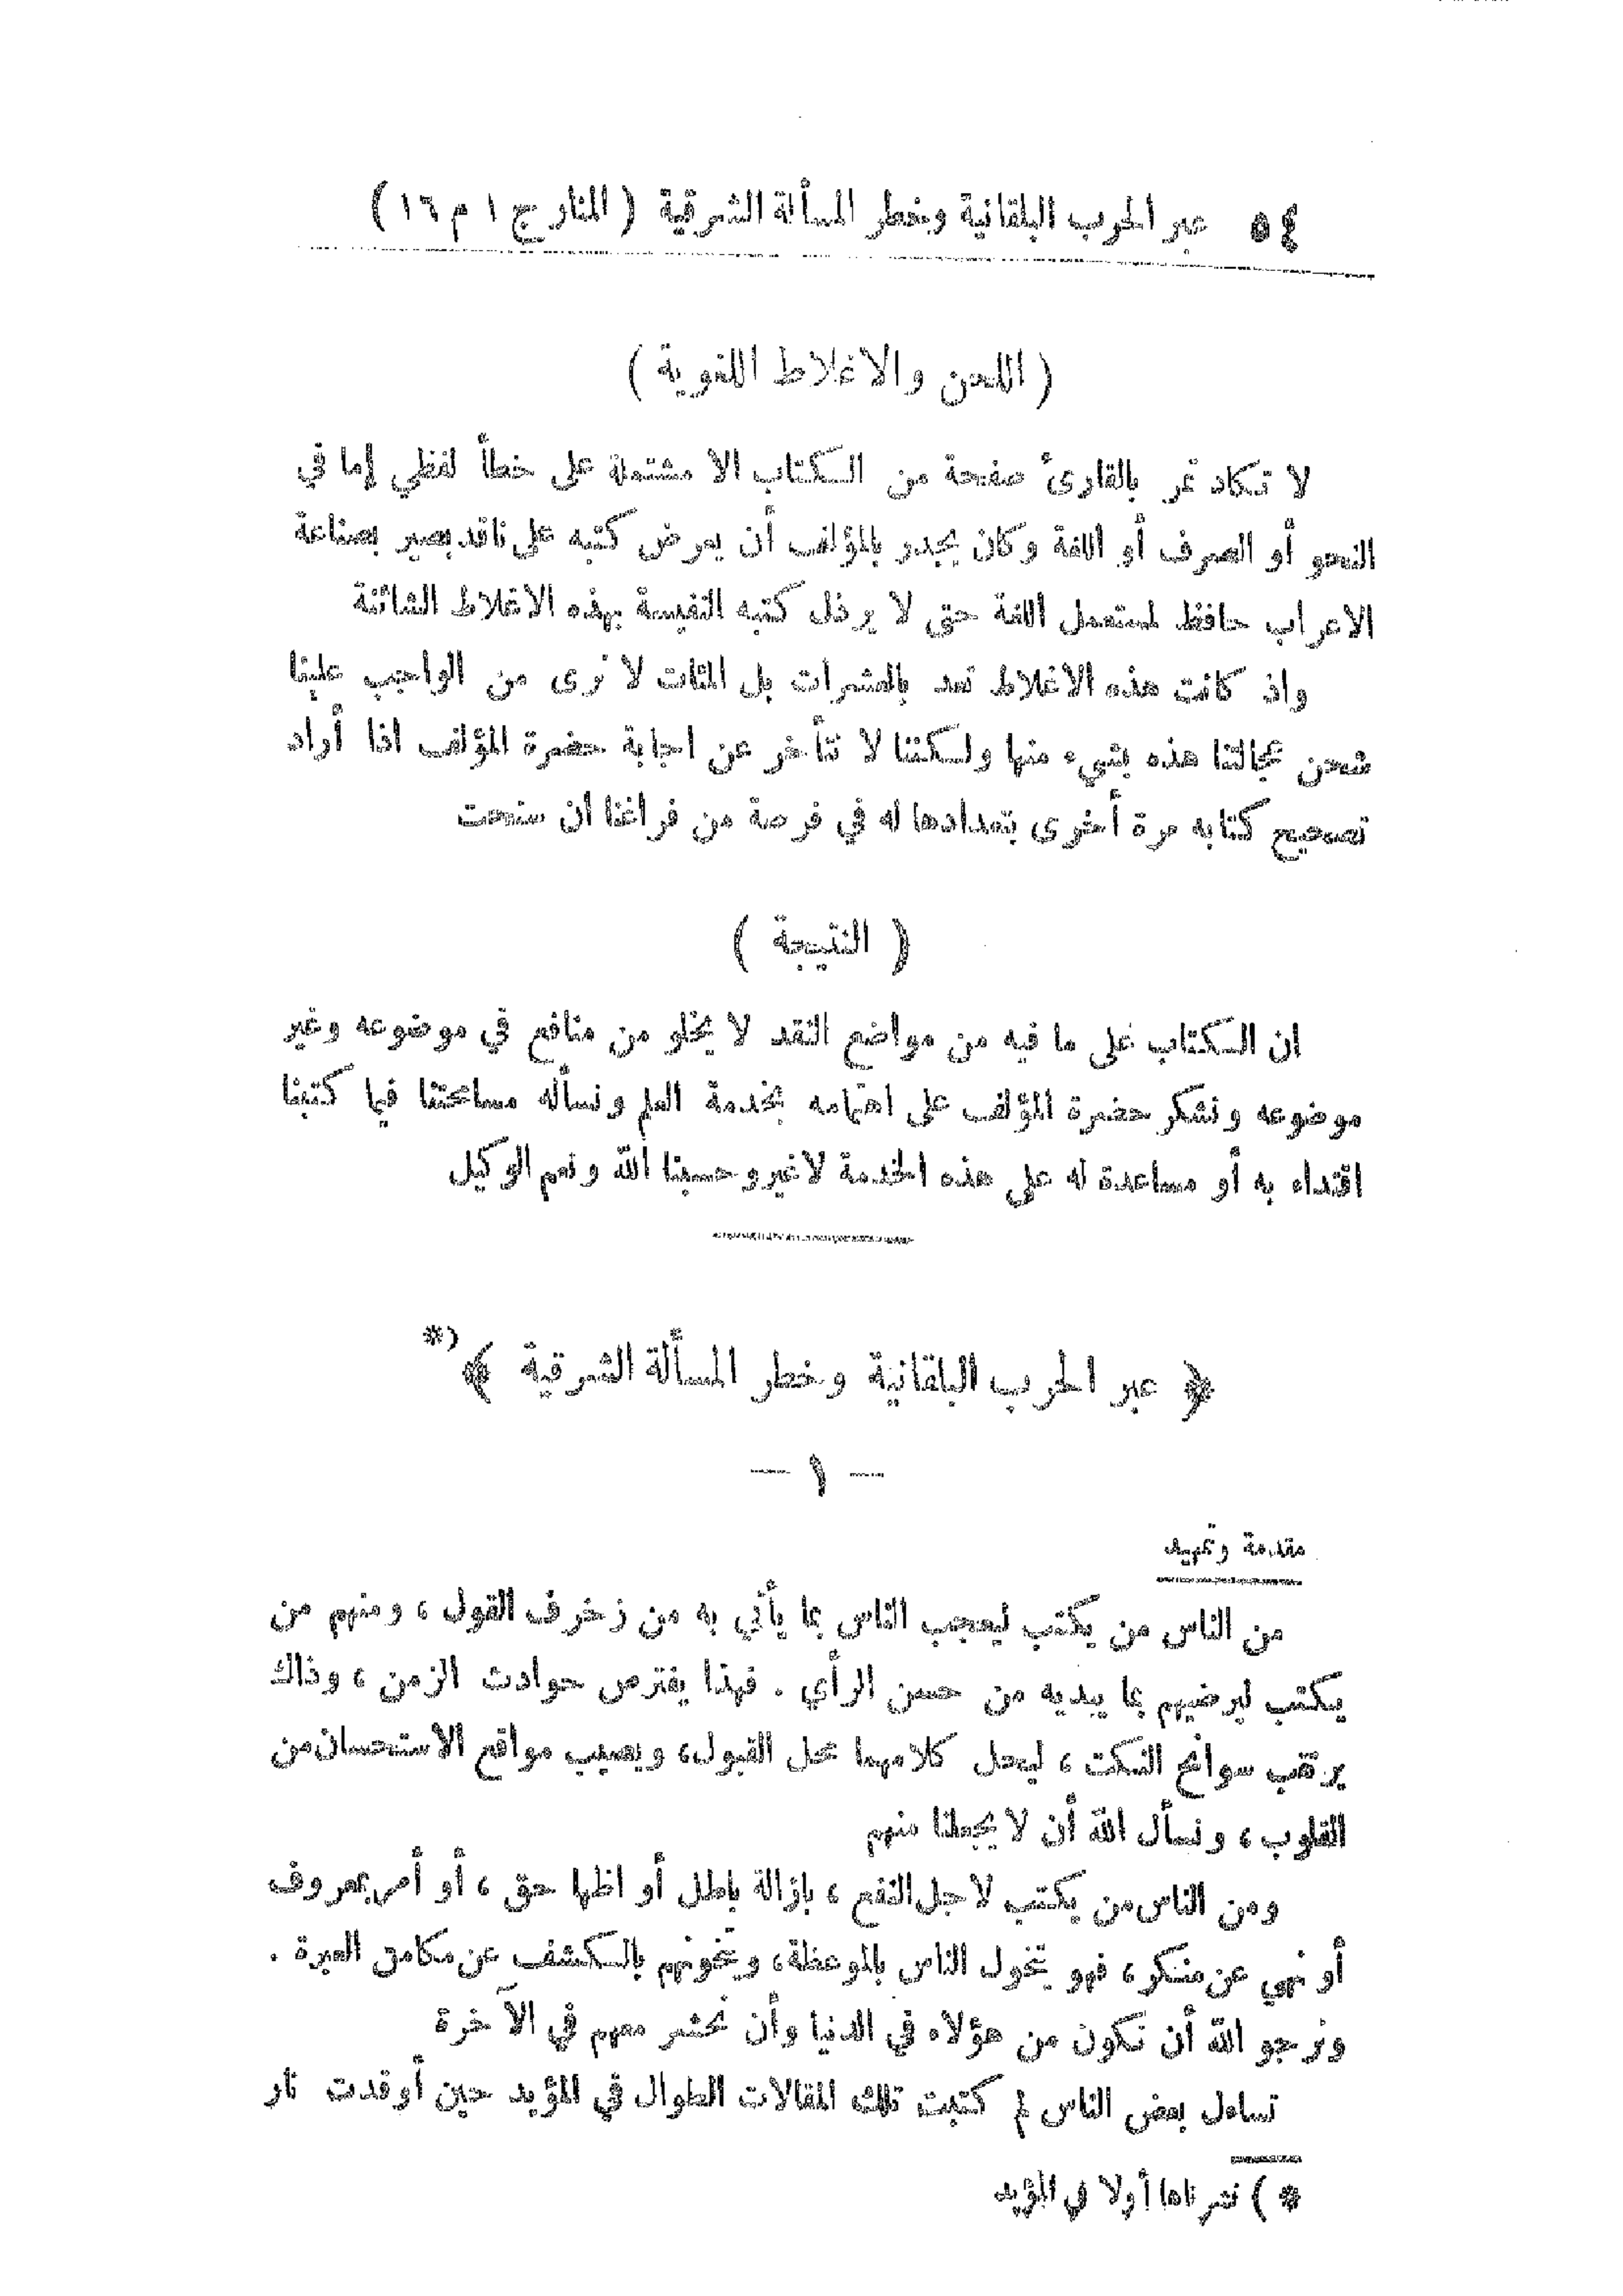 ٥٤ عبر الحرب البلقانية وخطر المسألة الشرقية ( المنار ج ١ م ١٦ )
( اللحن والاغلاط اللغوية )
لا تكاد تمر بالقارئ صفحة من الكتاب الا مشتملة على خطأ لفظي إما في
النحو أو الصرف أو اللغة وكان يجدر بالمؤلف أن يعرض كتبه على ناقد بصير بصناعة
الاعراب حافظ لمستعمل اللغة حتى لا يرذل كتبه النفيسة بهذه الاغلاط الشائنة
واذ كانت هذه الاغلاط تعد بالعشرات بل المئات لا نرى من الواجب علينا
شحن عجالتنا هذه بشيء منها ولكننا لا نتأخر عن اجابة حضرة المؤلف اذا أراد
تصحيح كتابه مرة أخرى بتعدادها له في فرصة من فراغنا ان سنحت
( النتيجة )
ان الكتاب على ما فيه من مواضع النقد لا يخلو من منافع في موضوعه وغير
موضوعه ونشكر حضرة المؤلف على اهتمامه بخدمة العلم ونسأله مسامحتنا فيما كتبنا
اقتداء به أو مساعدة له على هذه الخدمة لاغير وحسبنا الله ونعم الوكيل
﴿ عبر الحرب البلقانية وخطر المسألة الشرقية ﴾ *)
— ١ —
مقدمة وتمهيد
من الناس من يكتب ليعجب الناس بما يأتي به من زخرف القول ، ومنهم من
يكتب ليرضيهم بما يبديه من حسن الرأي . فهذا يفترص حوادث الزمن ، وذاك
يرقب سوانح النكت ، ليحل كلامهما محل القبول، ويصيب مواقع الاستحسان من
القلوب ، ونسأل الله أن لا يجعلنا منهم
ومن الناس من يكتب لاجل النفع ، بازالة باطل أو اظها حق ، أو أمر بمعروف
أو نهي عن منكر ، فهو يتخول الناس بالموعظة، ويتخونهم بالكشف عن مكامن العبرة .
ونرجو الله أن نكون من هؤلاء في الدنيا وأن نحشر معهم في الآخرة
تساءل بعض الناس لم كتبت تلك المقالات الطوال في المؤيد حين أوقدت نار
*) نشرناها أولا في المؤيد